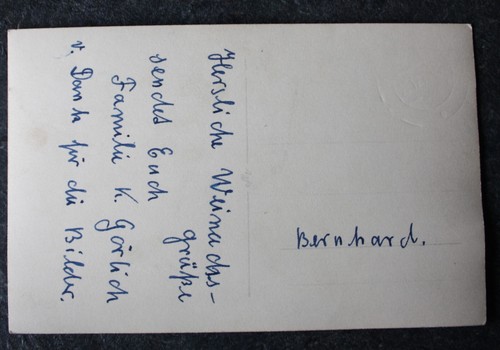 Hersliche Weinachs-
grüße
sendet Euch
Familie K. Görlich
v. Dank für die Bilder.
Bernhard.